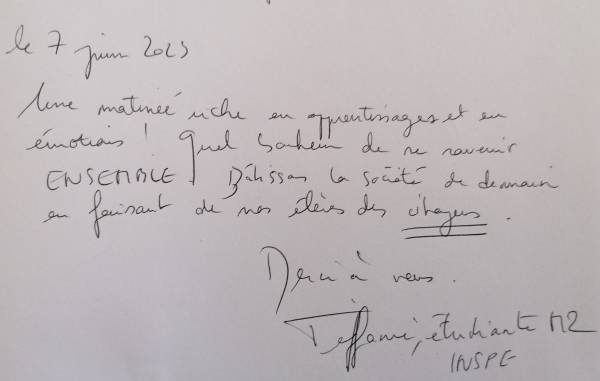 le 7 juin 2023
Une matinée riche en apprentissages et en
émotions ! Quel bonheur de se souvenir
ENSEMBLE ! Bâtissons la société de demain
en faisant de nos élèves des citoyens.
Merci à vous.
étudiante M2
INSPE